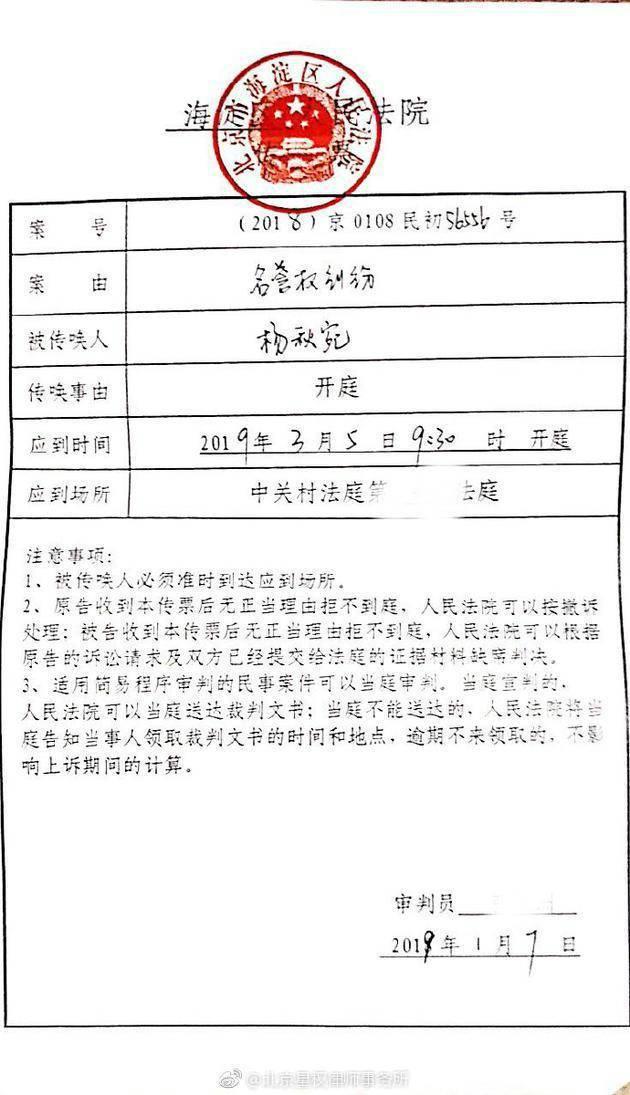 海
法院
北京市海淀区人民法院
案 号 (2018)京0108民初56556号
案 由 名誉权纠纷
被传唤人 杨秋宛
传唤事由 开庭
应到时间 2019年3月5日9:30时 开庭
应到场所 中关村法庭第 法庭
注意事项:
1、被传唤人必须准时到达应到场所。
2、原告收到本传票后无正当理由拒不到庭,人民法院可以按撤诉
处理;被告收到本传票后无正当理由拒不到庭,人民法院可以根据
原告的诉讼请求及双方已经提交给法庭的证据材料缺席判决。
3、适用简易程序审判的民事案件可以当庭审判。当庭宣判的,
人民法院可以当庭送达裁判文书;当庭不能送达的,人民法院将当
庭告知当事人领取裁判文书的时间和地点,逾期不来领取的,不影
响上诉期间的计算。
审判员
2019年1月7日
@北京星权律师事务所